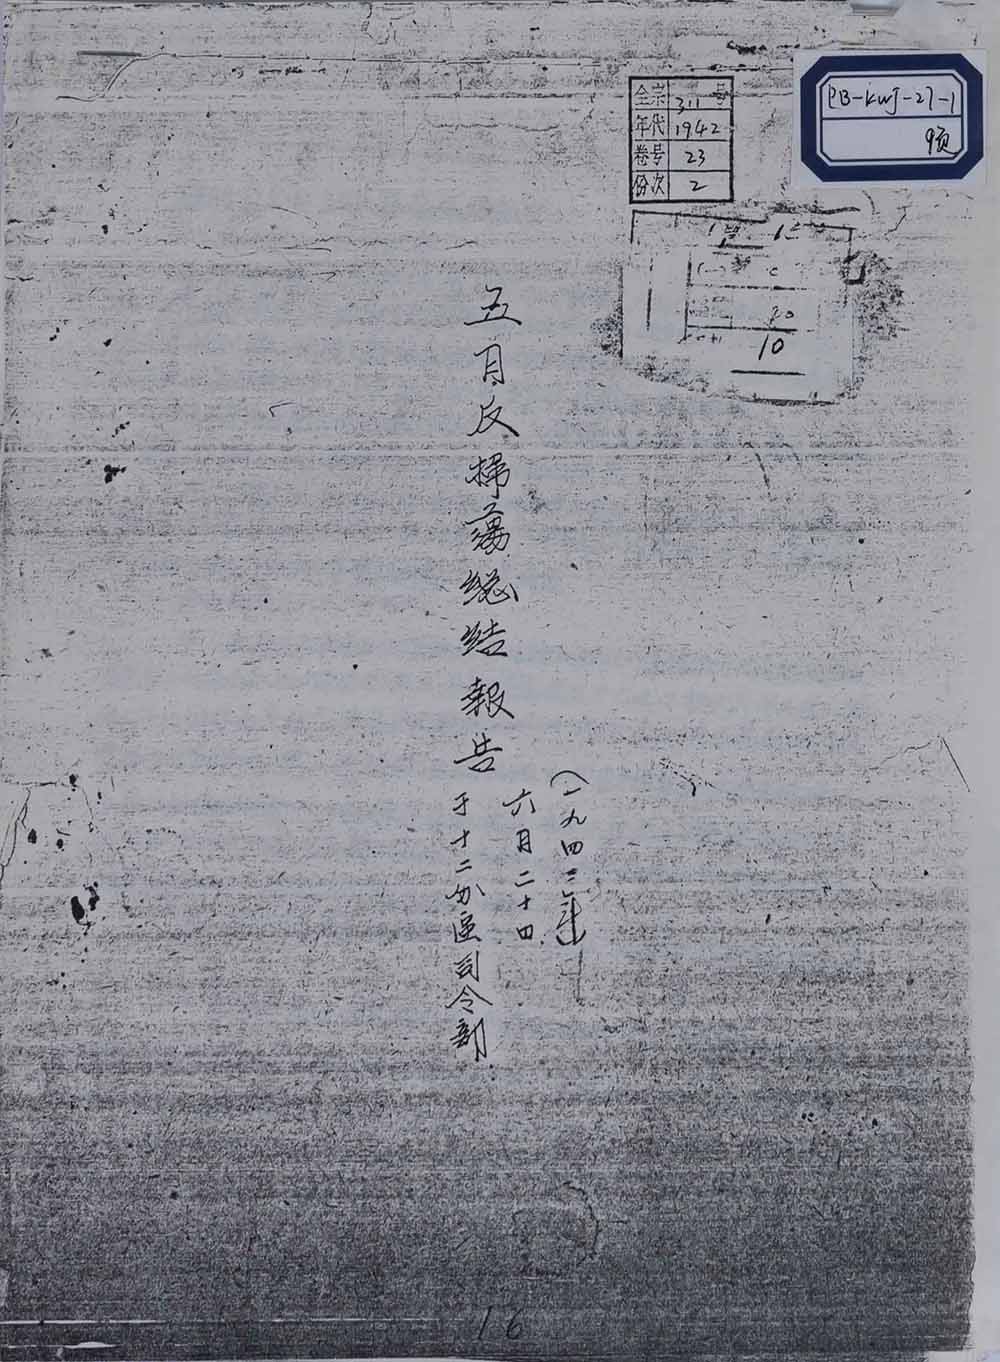 PB-KWJ-27-1
9页
全宗 311 号
年代 1942
卷号 23
份次 2
20
10
五月反掃蕩總結報告
(一九四二年
六月二十四
于十二分區司令部
16